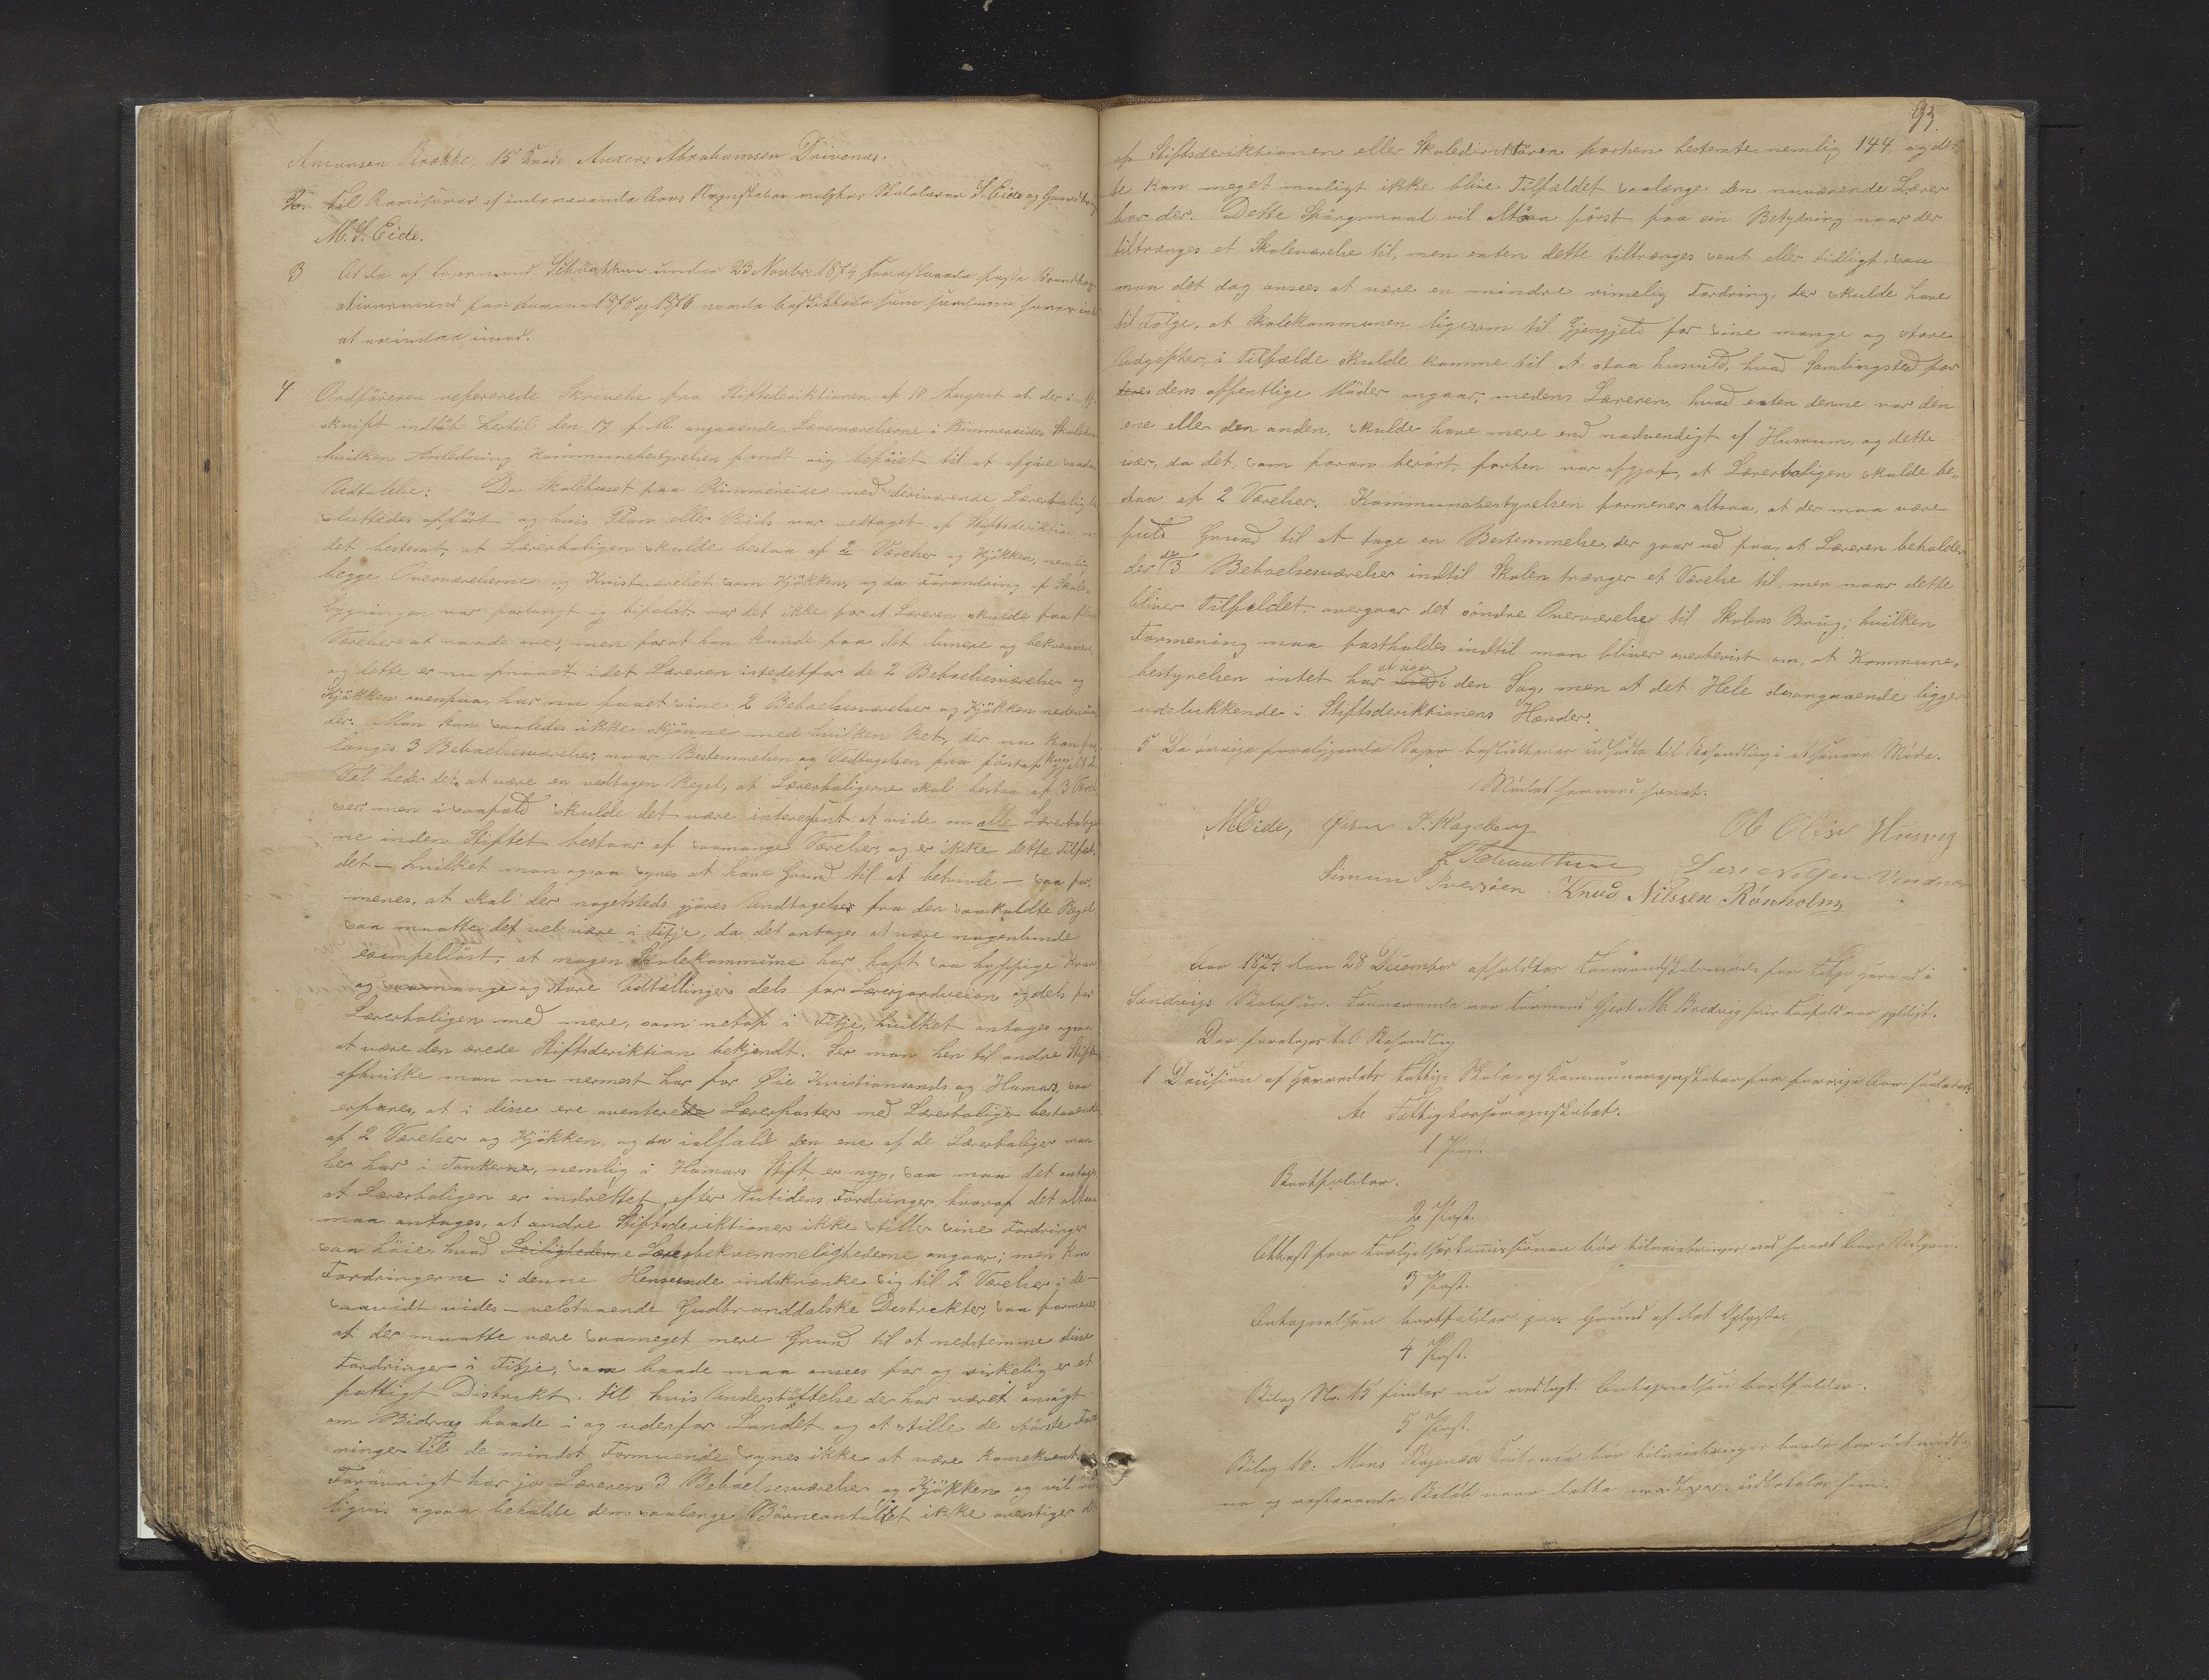 Amunsen Brække, 15 Knud Anders Abrahamsen Drivenæs.
2. Til Revisorer af indeværende Aars Regnskaber valgtes Skolelærer S. Eide og
M. S. Eide.
3 At de af Schwathun under 23 Novbr. 1874
for Aarene 1875 og 1876
at erindre imod.
4 Ordføreren refererede Skrivelse fra Stiftsdirektionen af 10 August at der i Af-
skrift indløb hertil den 17 f. M. angaaende Lærerværelserne i Rimmereidets Skolehus
hvilken Anledning Kommunebestyrelsen fandt sig beføiet til at afgive saadan
Udtalelse: Da Skolehuset paa Rimmereide med deriværende Lærerbolig be-
sluttedes opført og hvis Plan eller Rids var vedtaget af Stiftsdirektion, var
det bestemt, at Lærerboligen skulde bestaa af 2 Værelser og Kjøkken, nemlig
begge Overværelserne og Kvistværelset som Kjøkken, og da Forandring af Skole-
bygningen var forlangt og bifaldt var det ikke for at Læreren skulde faa flere
Værelser at raade over, men for at han kunde faa det lunere og bekvemere,
og dette er nu opnaaet idet Læreren istedetfor de 2 Beboelsesværelser og
Kjøkken ovenpaa, har nu faaet sine 2 Beboelsesværelser og Kjøkken nedenun-
der. Man kan saaledes ikke skjønne med hvilken Ret, der nu kan for-
langes 3 Beboelsesværelser, naar Bestemmelsen og Vedtagelsen fra først af kun gjaldt 2.
Vel heder det, at være en vedtagen Regel, at Lærerboligerne skal bestaa af 3 Værel
ser, men i saafald skulde det være interesant at vide om alle Lærerbolige
ne inden Stiftet bestaar af saamange Værelser, og er ikke dette Tilfæl-
det – hvilket man ogsaa synes at have Grund til at betvivle – saa for-
menes, at skal der nogetsteds gjøres Undtagelser fra den saakaldte Regel,
saa maatte det vel være i Fitje, da det antages at være nogenlunde
exempelløst, at nogen Skolekommune har haft saa hyppige Krav
og saamange og store Udtællinger dels for Lærerjordveien og dels for
Lærerboligen med mere, som netop i Fitje, hvilket antages ogsaa
at være den ærede Stiftsdirektion bekjendt. Ser man hen til andre Stifter
afhvilke man nu nermest har for Øie Kristiansands og Hamars, saa
erfares, at i disse ere averterede Lærerposter med Lærerboliger bestaaende
af 2 Værelser og Kjøkken, og da ialfald den ene af de Lærerboliger man
her har i Tankerne, nemlig i Hamars Stift er nye, saa maa det antages
at Lærerboligen er indrettet efter Nutidens Fordringer, hvoraf det altsaa
maa antages, at andre Stiftsdirektioner ikke stiller sine Fordringer
saa høie, hvad Leilighederne Lærerbekvemmelighederne angaar; men kan
Fordringerne i denne Henseende indskrænke sig til 2 Værelser i de –
saavidt vides – velstaaende Gudbranddalske Destrikter, saa formenes
at der maatte være saameget mere Grund til at nedstemme disse
Fordringer i Fitje, som baade maa ansees for og virkelig er et
fattigt Distrikt. til hvis Understøttelse der har været ansøgt
om Bidrag baade i og udenfor Landet og at stille de største Ford
ringer til de mindst Formuende synes ikke at være konsekvent
Forøvrigt har jo Læreren 3 Beboelsesværelser og Kjøkken og vil rime
ligvis ogsaa beholde dem saalænge Børneantallet ikke overstiger det
93.
af Stiftsdirektionen eller Skoledirektøren forhen bestemte nemlig 144. og det-
te kan meget muligt ikke blive Tilfældet saalænge den nuværende Lærer
bor der. Dette Spørgsmaal vil altsaa først faa ein Betydning naar der
tiltrænges et Skoleværelse til, men enten dette tiltrænges sent eller tidligt, saa
maa det dog ansees at være en mindre rimelig Fordring, der skulde have
til Følge, at Skolekommunen ligesom til Gjengjeld for sine mange og store
Udgifter, i Tilfælde skulde komme til at staa husvild, hvad Samlingsted for
deres dens offentlige Møder angaar, medens Læreren, hvad enten denne var den
ene eller den anden, skulde have mere end nødvendigt af Husrum, og dette
især, da det, som foran berørt, forhen var afgjort, at Lærerboligen skulde be-
staa af 2 Værelser. Kommunebestyrelsen formener altsaa, at der maa være
fuld Grund til at tage en Bestemmelse, der gaar ud paa, at Læreren beholder
de 3 Beboelsesværelser indtil Skolen trænger et Værelse til, men naar dette
bliver Tilfældet, overgaar det søndre Overværelse til Skolens Brug; hvilken
Formening maa fastholdes indtil man bliver overbevist om, at Kommune-
bestyrelsen intet har at sige i den Sag, men at det Hele desangaaende ligger
udelukkende i Stiftsdirektionens Hænder.
5 De øvrige foreliggende Sager besluttedes udsatte til Behandling i et senere Møde.
Mødet hermed hævet.
M Eide, S. Mageberg Ol Olsen Husvig
L Schwathun Lars Nilsen Vendnæs
Simon S Iversøen Knud Nilssen Rønholm
Aar 1874 den 28 December afholdtes Formandskabsmøde for Fitje Herred i
Sandvigs Skolehus. Fraværende var Formand Gjert M. Bredvig hvis Forfald var gyldigt.
Der foretoges til Behandling
1 Decision af Herredets Fattig- Skole- og Kommuneregnskaber for forrige Aar saaledes:
A. Fattigkasseregnskabet.
1 Post.
Bortfalder.
2 Post.
Attest fra Forligelseskommissionen bør tilveiebringes
3 Post.
Antegnelsen bortfalder paa Grund af det Oplyste.
4 Post.
Bilag No. 15 findes nu vedlagt. Antegnelsen bortfalder.
5 Post.
Bilag 16. Mons bør tilveiebringes
og resterende Beløb naar dette